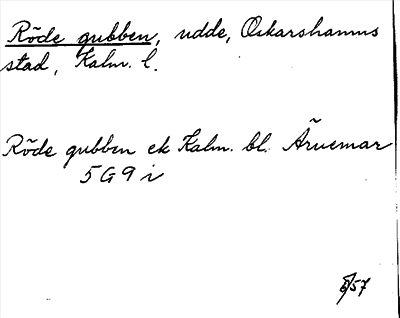 Röde gubben, udde, Oskarshamns
stad, Kalm. l.
Röde gubben ek Kalm. bl. Äruemar
5G9 i
57